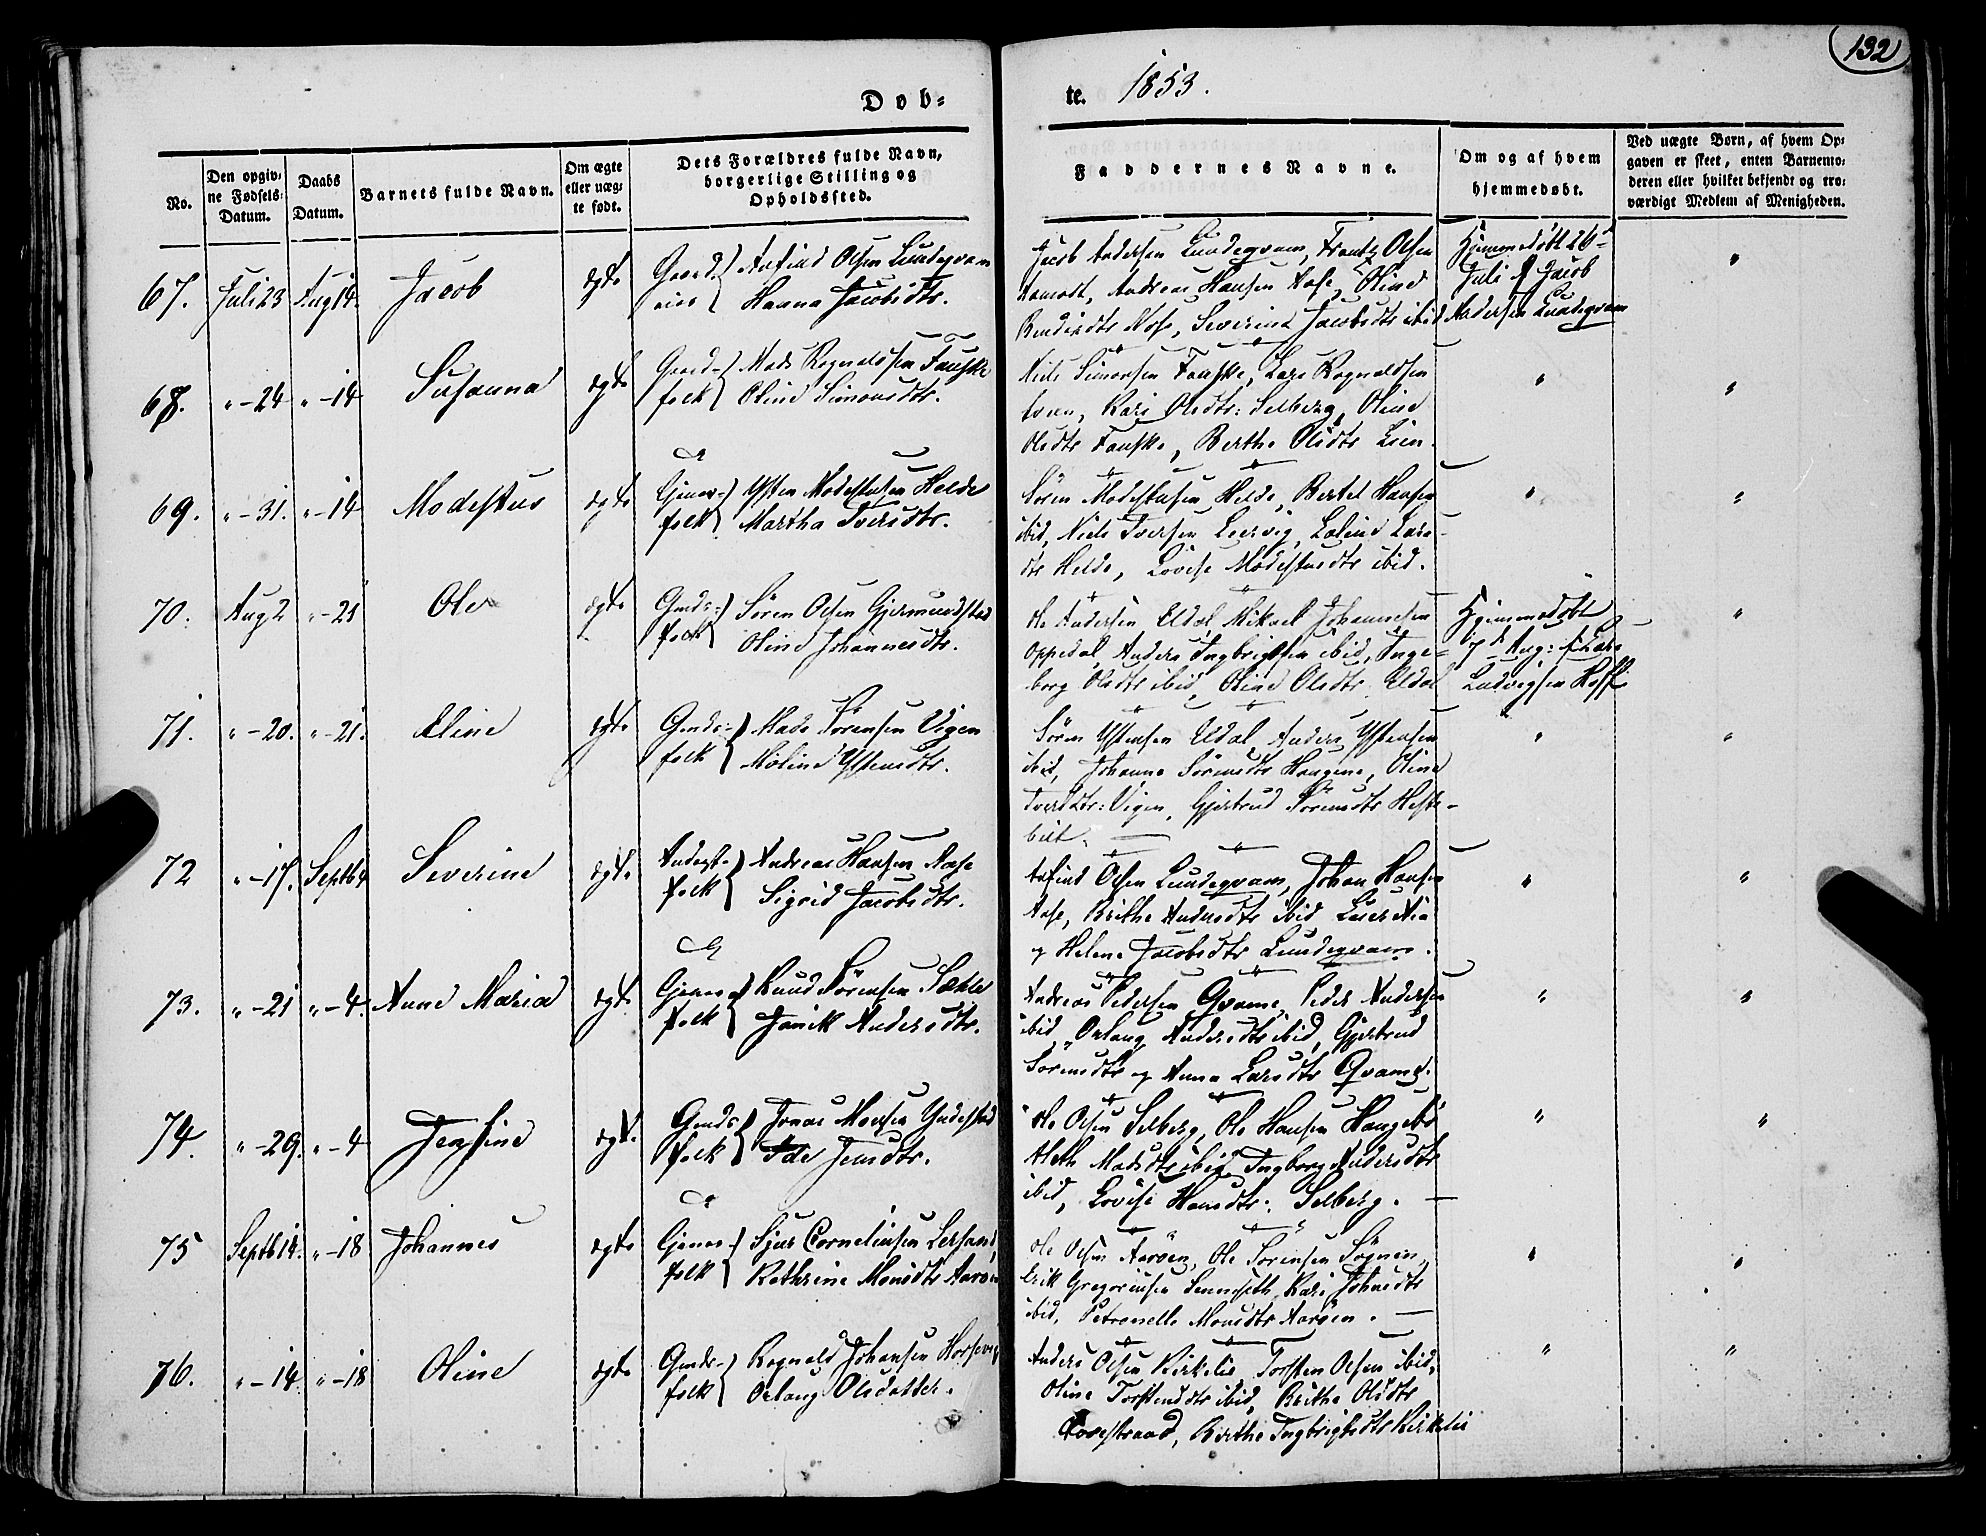 132
Døb-
te. 1853.
No.
Den opgiv-
ne Fødsels-
Datum.
Daabs
Datum.
Barnets fulde Navn.
Om ægte
eller uæg-
te født.
Dets Forældres fulde Navn,
borgerlige Stilling og
Opholdssted.
Faddernes Navne.
Om og af hvem
hjemmedøbt.
Ved uægte Børn, af hvem Op-
gaven er skeet, enten Barnemo-
deren eller hvilket bekjendt og tro-
værdigt Medlem af Menigheden.
67. Juli 23 Aug 14. Jacob ægte Gaard- Anfind Olsen Lundeqvam
eier Hanna Jacobsdtr.
Jacob Andersen Lundeqvam, Frantz Olsen
Aamodt, Andreas Hansen Aase, Oline
Aase, Severine Jacobsdtr ibid
Hjemmedøbt 26de
Juli af Jacob
Andersen Lundeqvam
"
68. " -24 " -14 Susanna ægte Gaard- Mads Rognaldsen Fauske
folk Oline Simonsdtr.
Niels Simonsen Fauske, Lars Rognaldsen
Kari Olsdtr: Selberg, Oline
Olsdtr Fauske, Berthe Olsdtr Lien.
" "
69. " -31. " -14 Modestus ægte Gjenor- Ysten Modestusen Helde
folk Martha Iversdtr.
Søren Modestusen Helde, Bertel Hansen
ibid, Niels Iversen Leervig, Lars-
dtr Helde, Lovise Modestusdtr ibid.
" "
70. Aug 2 " -21 Ole ægte Gmds- Søren Olsen Gjermundstad
folk Oline Johannesdtr.
Ole Andersen Eldal, Mikael Johannesen
Oppedal, Anders Ingbrigtsen ibid, Inge-
borg Olsdtr ibid, Oline Olsdtr Eldal
Hjemmedøbt
7de Aug: af Lars
Ludvigsen
"
71. " -20. " -21. Eline ægte Gmds- Mads Sørensen Vigen
folk Moline Ystensdtr.
Søren Ystensen Eldal, Anders Ystensen
ibid, Johanne Sørensdtr Haugene, Oline
Iversdtr: Vigen, Gjertrud Sørensdtr Heste-
beit.
" "
72 " -17. Septb 4 Severine ægte folk Andreas Hansen Aase
Sigrid Jacobsdtr.
Anfind Olsen Lundeqvam, Johan Hansen
Aase, Brithe Andersdtr ibid,
og Helene Jacobsdtr Lundeqvam.
" "
73. " -21 " -4. Anne Maria ægte Gjenor- Knud Sørensen Sæhle
folk Janik Andersdtr.
Andreas Pedersen Qvame, Peder Andersen
ibid, Orlaug Andersdtr ibid, Gjertrud
Sørensdtr og Anna Larsdtr Qvame.
" "
74. " -29. " -4 Jensine ægte. Gmds- Jonas Monsen Yndestad
folk Ida Jensdtr.
Ole Olsen Selberg, Ole Hansen Haugebø
Madsdtr ibid, Ingborg Andersdtr
ibid, Lovise Hansdtr: Selberg.
" "
75 Septb 14. " -18 Johannes ægte Gjenor- Sjur Corneliusen
folk Kathrine Monsdtr Aarøen
Ole Olsen Aarøen, Ole Sørensen Sognen,
Erik Gregoriusen Kari Johnsdtr
ibid, Petronelle Monsdtr Aarøen.
" "
76. " -14. " -18 Oline ægte Gmds- Rognald Johansen
folk Orlaug Olsdatter.
Anders Olsen Kirkelie, Torsten Olsen ibid,
Oline Torstensdtr ibid, Brithe Olsdtr
Brithe Ingbrigtsdtr Kirkelie
" "